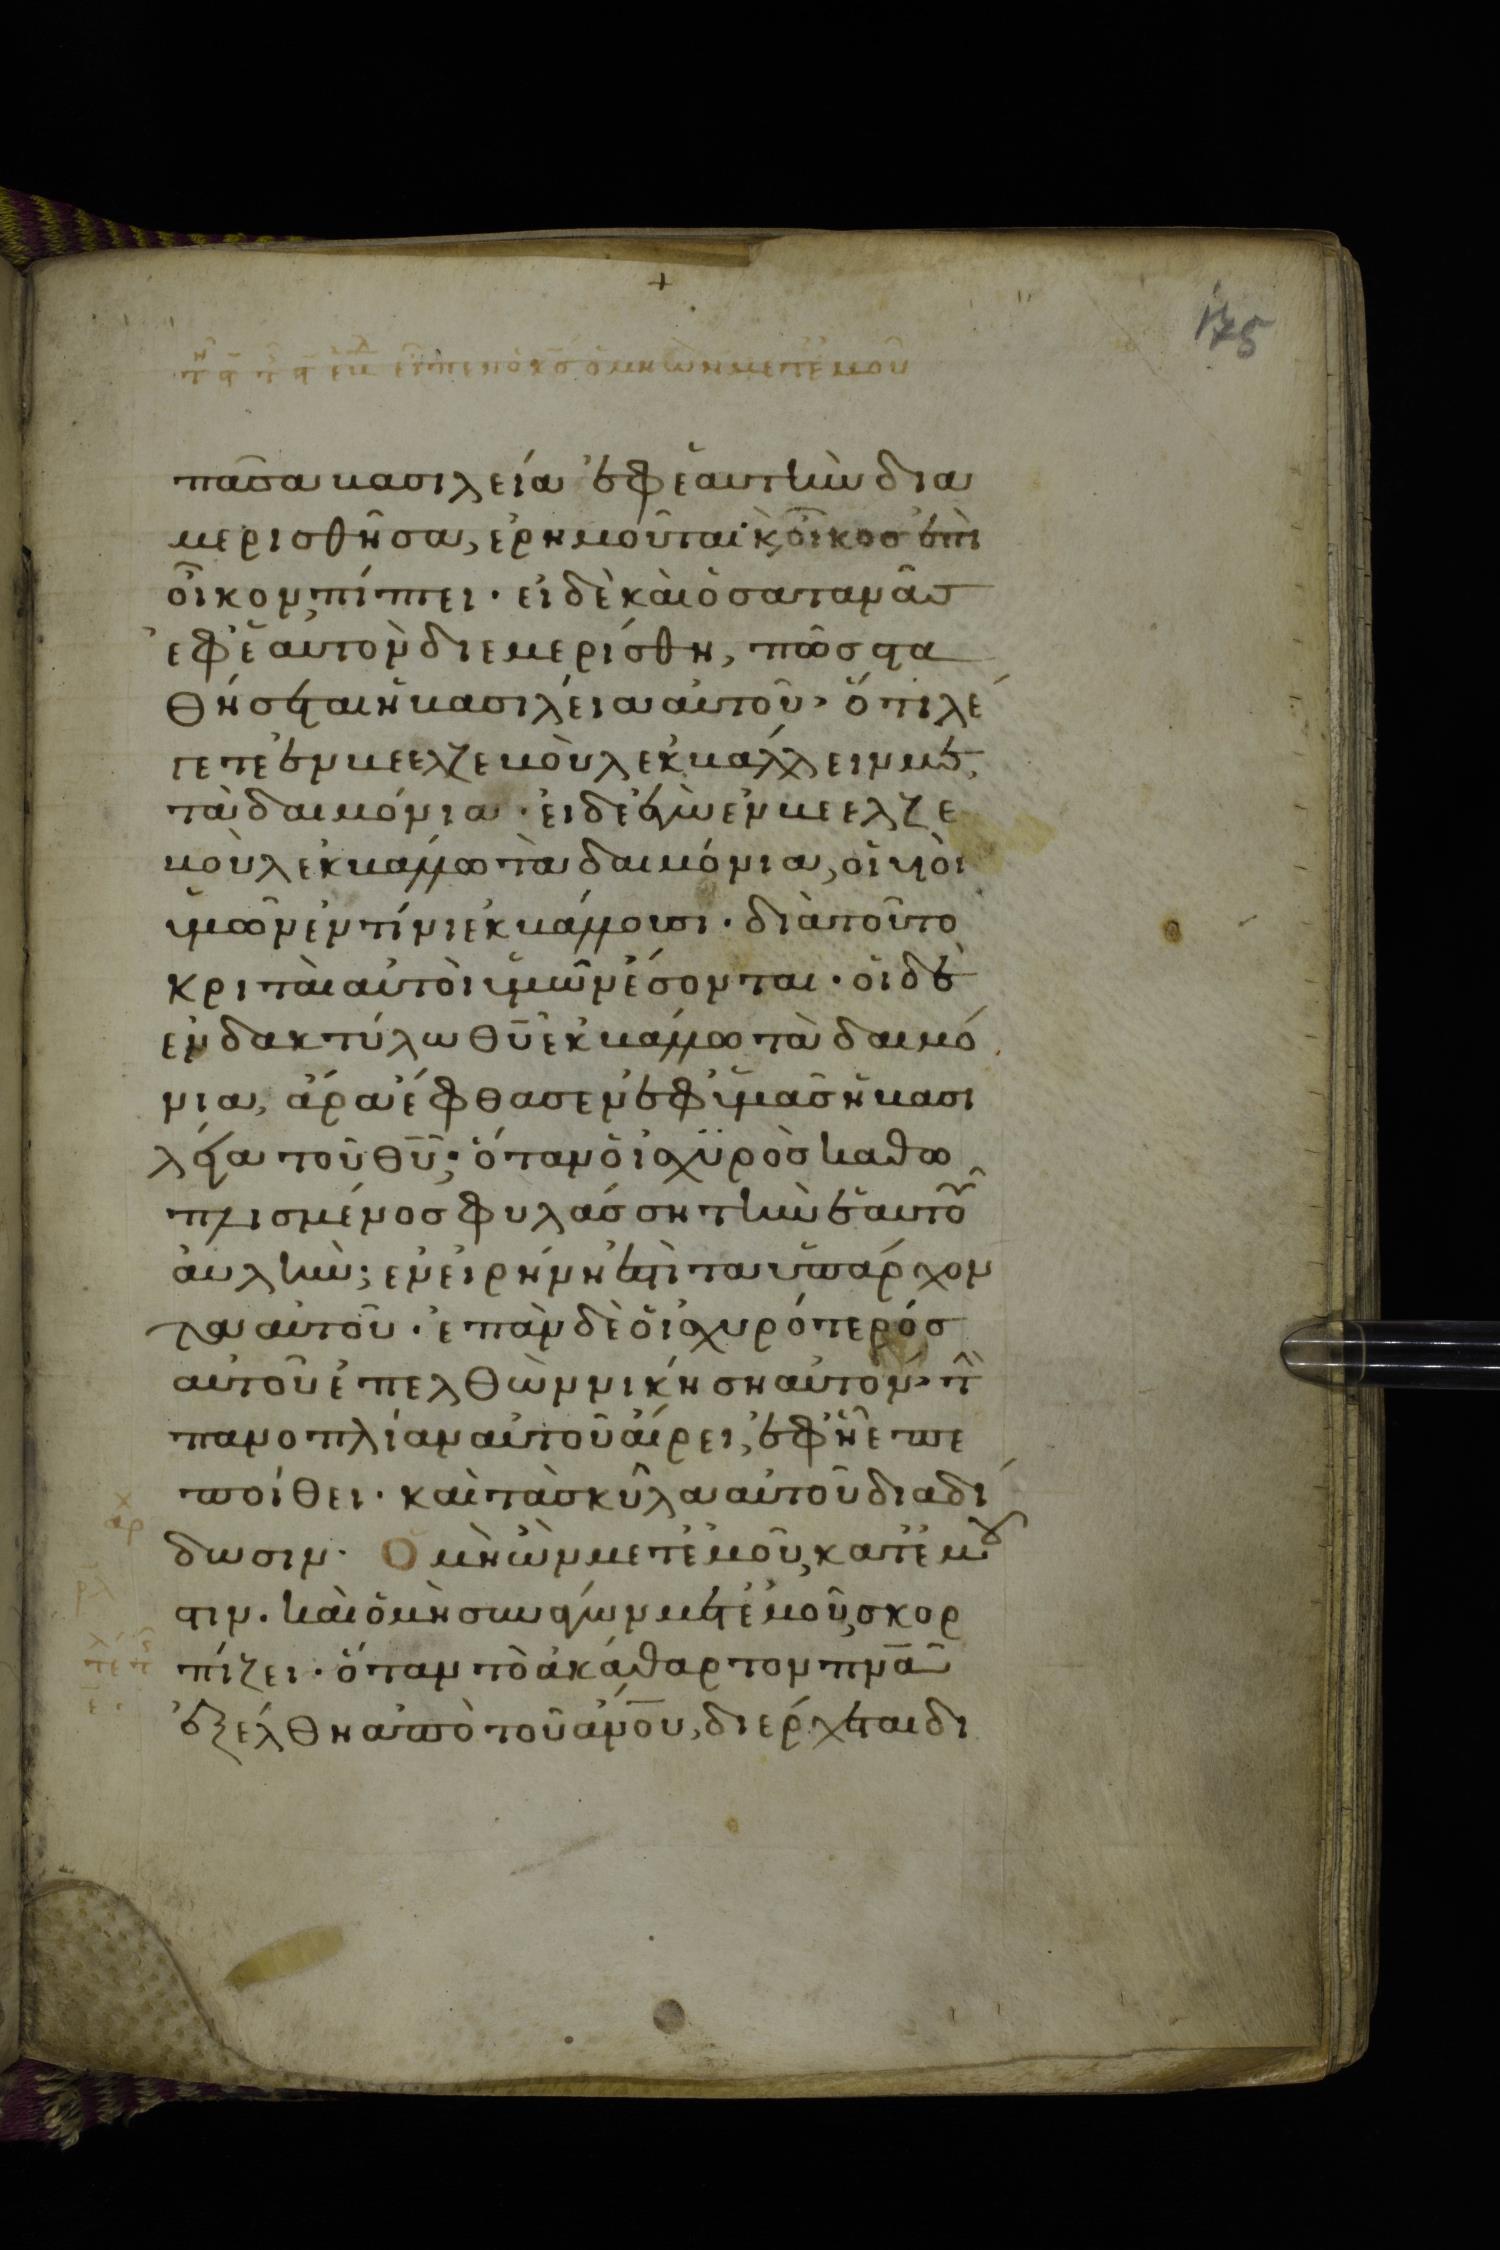 πᾶσα βασιλεία ἐφ ἑαυτὴν δια
μερισθῆσα, ἐρημοῦται· κ, οἶκος ἐπὶ
οἶκον πίπτει· εἰ δὲ καὶ ὁ σατανᾶς
ἐφ ἑαυτὸν διεμερίσθη, πῶς στα
θήσεται ἡ βασιλεία αὐτοῦ· ὅτι λέ
γετε ἐν βεελζεβοὺλ ἐκβάλλειν με,
τὰ δαιμόνια· εἰ δὲ ἐγὼ ἐν βεελζε
βοὺλ ἐκβάλλω τὰ δαιμόνια, οἱ υἱοὶ
ὑμῶν ἐν τίνι ἐκβάλλουσι· διὰ τοῦτο
κριταὶ αὐτοὶ ὑμῶν ἔσονται· εἰ δὲ
ἐν δακτύλω θῦ ἐκβάλλω τὰ δαιμό
νια, ἄρα ἔφθασεν ἐφ ὑμᾶς ἡ βασι
λεία τοῦ θῦ· ὅταν ὁ ἰσχϋρὸς καθω
πλισμένος φυλάσση τὴν ἑαυτοῦ
αὐλὴν; ἐν εἰρήνη ἐστὶ τὰ ὑπάρχον
τα αὐτοῦ· ἐπὰν δὲ ὁ ἰσχυρότερός
αὐτοῦ ἐπελθὼν νικήση αὐτόν· τὴν
πανοπλίαν αὐτοῦ αἴρει, ἐφ ἧ ἐπε
ποίθει· καὶ τὰ σκῦλα αὐτοῦ διαδί
δωσιν· Ὁ μὴ ὢν μετ ἐμοῦ, κατ ἐμοῦ
στιν· καὶ ὁ μὴ συνάγων μετ ἐμοῦ, σκορ
πίζει· ὅταν τὸ ἀκάθαρτον πνᾶ
ἐξέλθη ἀπὸ τοῦ ἀνου, διέρχεται δι